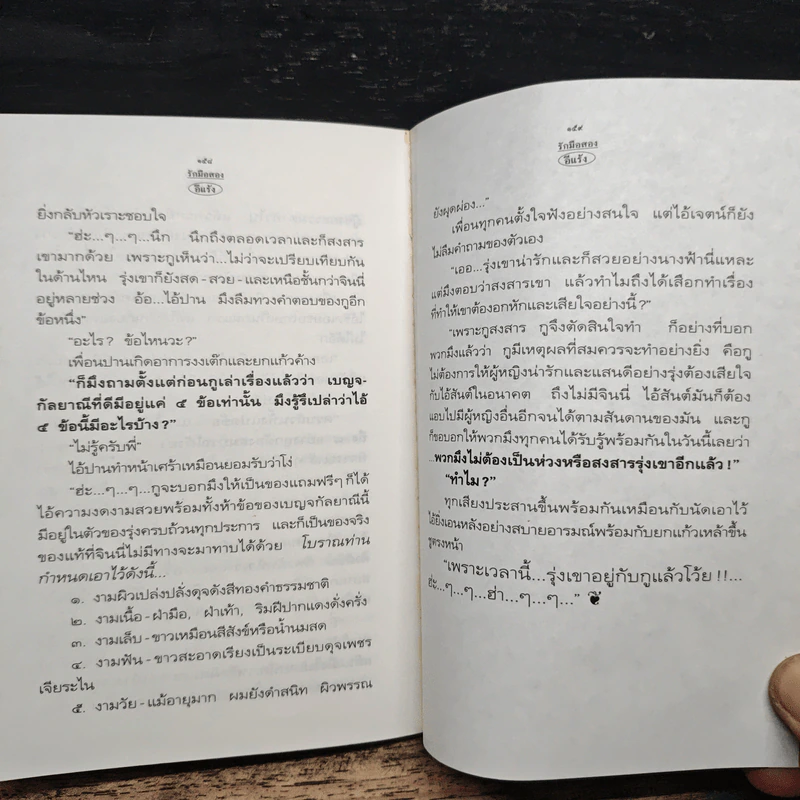 ๑๕๘
รักมือสอง
อีแร้ง
ยิ่งกลับหัวเราะชอบใจ
“ฮ่ะ...ๆ...ๆ...นึก นึกถึงตลอดเวลาและก็สงสาร
เขามากด้วย เพราะกูเห็นว่า...ไม่ว่าจะเปรียบเทียบกัน
ในด้านไหน รุ่งเขาก็ยังสด-สวย-และเหนือชั้นกว่าจินนี่
อยู่หลายช่วง อ้อ...ไอ้ปาน มึงลืมทวงคำตอบของกูอีก
ข้อหนึ่ง”
“อะไร? ข้อไหนวะ?”
เพื่อนปานเกิดอาการงงเต๊กและยกแก้วค้าง
“ก็มึงถามตั้งแต่ก่อนกูเล่าเรื่องแล้วว่า เบญจ-
กัลยาณีที่ดีมีอยู่แค่ ๕ ข้อเท่านั้น มึงรู้รึเปล่าว่าไอ้
๕ ข้อนี้มีอะไรบ้าง?”
“ไม่รู้ครับพี่”
ไอ้ปานทำหน้าเศร้าเหมือนยอมรับว่าโง่
“ฮ่ะ...ๆ...ๆ...กูจะบอกมึงให้เป็นของแถมฟรีๆ ก็ได้
ไอ้ความงดงามสวยพร้อมทั้งห้าข้อของเบญจกัลยาณีนี้
มีอยู่ในตัวของรุ่งครบถ้วนทุกประการ และก็เป็นของจริง
ของแท้ที่จินนี่ไม่มีทางจะมาทาบได้ด้วย โบราณท่าน
กำหนดเอาไว้ดังนี้...
๑. งามผิวเปล่งปลั่งดุจดังสีทองคำธรรมชาติ
๒. งามเนื้อ-ฝ่ามือ, ฝ่าเท้า, ริมฝีปากแดงดั่งครั่ง
๓. งามเล็บ-ขาวเหมือนสีสังข์หรือน้ำนมสด
๔. งามฟัน-ขาวสะอาดเรียงเป็นระเบียบดุจเพชร
เจียระไน
๕. งามวัย-แม้อายุมาก ผมยังดำสนิท ผิวพรรณ
๑๕๙
รักมือสอง
อีแร้ง
ยังผุดผ่อง...”
เพื่อนทุกคนตั้งใจฟังอย่างสนใจ แต่ไอ้เจตน์ก็ยัง
ไม่ลืมคำถามของตัวเอง
“เออ...รุ่งเขาน่ารักและก็สวยอย่างนางฟ้านี่แหละ
แต่มึงตอบว่าสงสารเขา แล้วทำไมถึงได้เสือกทำเรื่อง
ที่ทำให้เขาต้องอกหักและเสียใจอย่างนี้?”
“เพราะกูสงสาร กูจึงตัดสินใจทำ ก็อย่างที่บอก
พวกมึงแล้วว่า กูมีเหตุผลที่สมควรจะทำอย่างยิ่ง คือกู
ไม่ต้องการให้ผู้หญิงน่ารักและแสนดีอย่างรุ่งต้องเสียใจ
กับไอ้สันต์ในอนาคต ถึงไม่มีจินนี่ ไอ้สันต์มันก็ต้อง
แอบไปมีผู้หญิงอื่นอีกจนได้ตามสันดานของมัน และกู
ก็ขอบอกให้พวกมึงทุกคนได้รับรู้พร้อมกันในวันนี้เลยว่า
...พวกมึงไม่ต้องเป็นห่วงหรือสงสารรุ่งเขาอีกแล้ว!”
“ทำไม?”
ทุกเสียงประสานขึ้นพร้อมกันเหมือนกับนัดเอาไว้
ไอ้ยิ่งเอนหลังอย่างสบายอารมณ์พร้อมกับยกแก้วเหล้าขึ้น
ชูตรงหน้า
“เพราะเวลานี้...รุ่งเขาอยู่กับกูแล้วโว้ย!!...
ฮ่ะ...ๆ...ๆ...ฮ่า...ๆ...ๆ...”